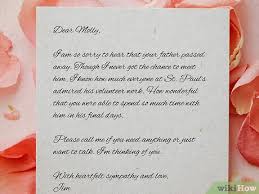 Dear Molly,
I am so sorry to hear that your father passed
away. Though I never got the chance to meet
him, I know how much everyone at St. Paul's
admired his volunteer work. How wonderful
that you were able to spend so much time with
him in his final days.
Please call me if you need anything or just
want to talk. I'm thinking of you.
With heartfelt sympathy and love,
Jim
wikiHow